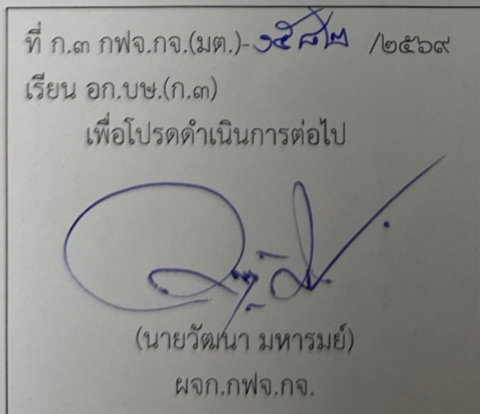 ที่ ก.๓ กฟจ.กจ.(มต.)-๑๕๘๒ /๒๕๖๙
เรียน อก.บษ.(ก.๓)
เพื่อโปรดดำเนินการต่อไป
(นายวัฒนา มหารมย์)
ผจก.กฟจ.กจ.